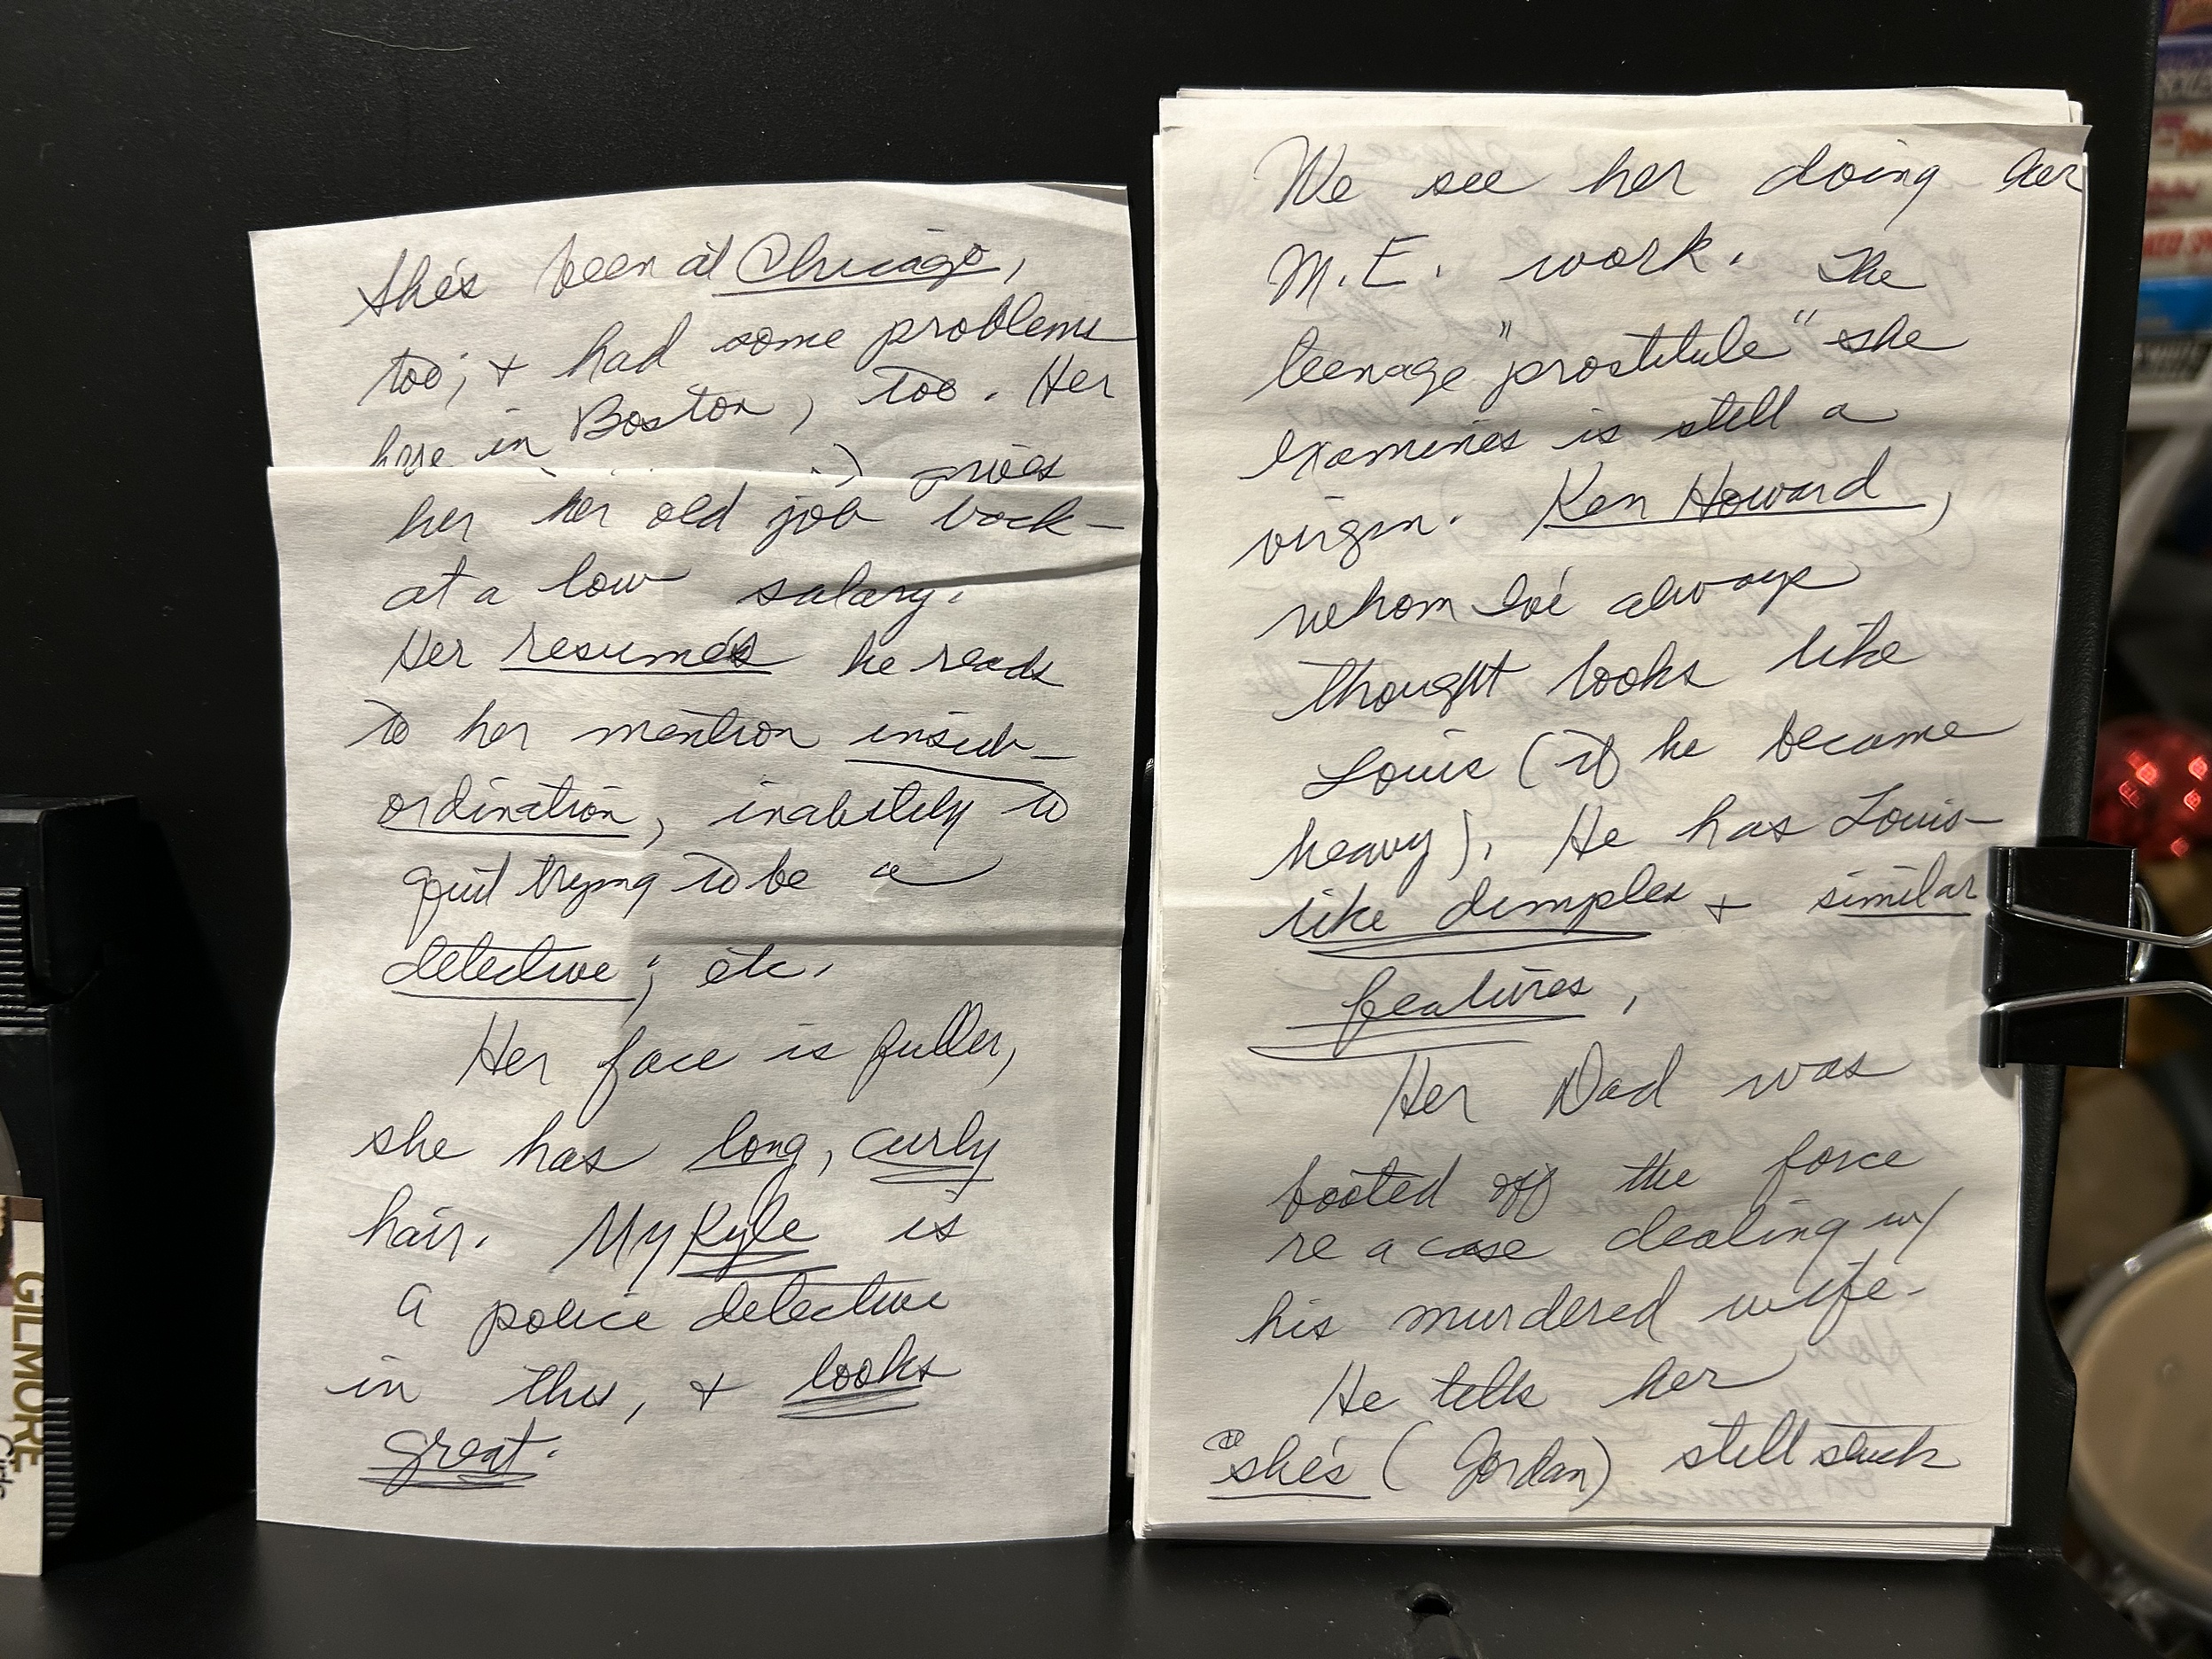 She's been at Chicago,
too; + had some problems
here in Boston, too. Her
gives
her her old job back -
at a low salary.
Her resumés he reads
to her mention insub-
ordination, inability to
quit trying to be a
detective; etc.
Her face is fuller,
she has long, curly
hair. My Kyle is
a police detective
in this, + looks
great.
We see her doing her
M.E. work. The
teenage "prostitute" she
examines is still a
virgin. Ken Howard,
whom I've always
thought looks like
Louis (if he became
heavy). He has Louis-
like dimples + similar
features.
Her Dad was
booted off the force
re a case dealing w/
his murdered wife.
He tells her
she's (Jordan) still stuck
GILMORE
Girls